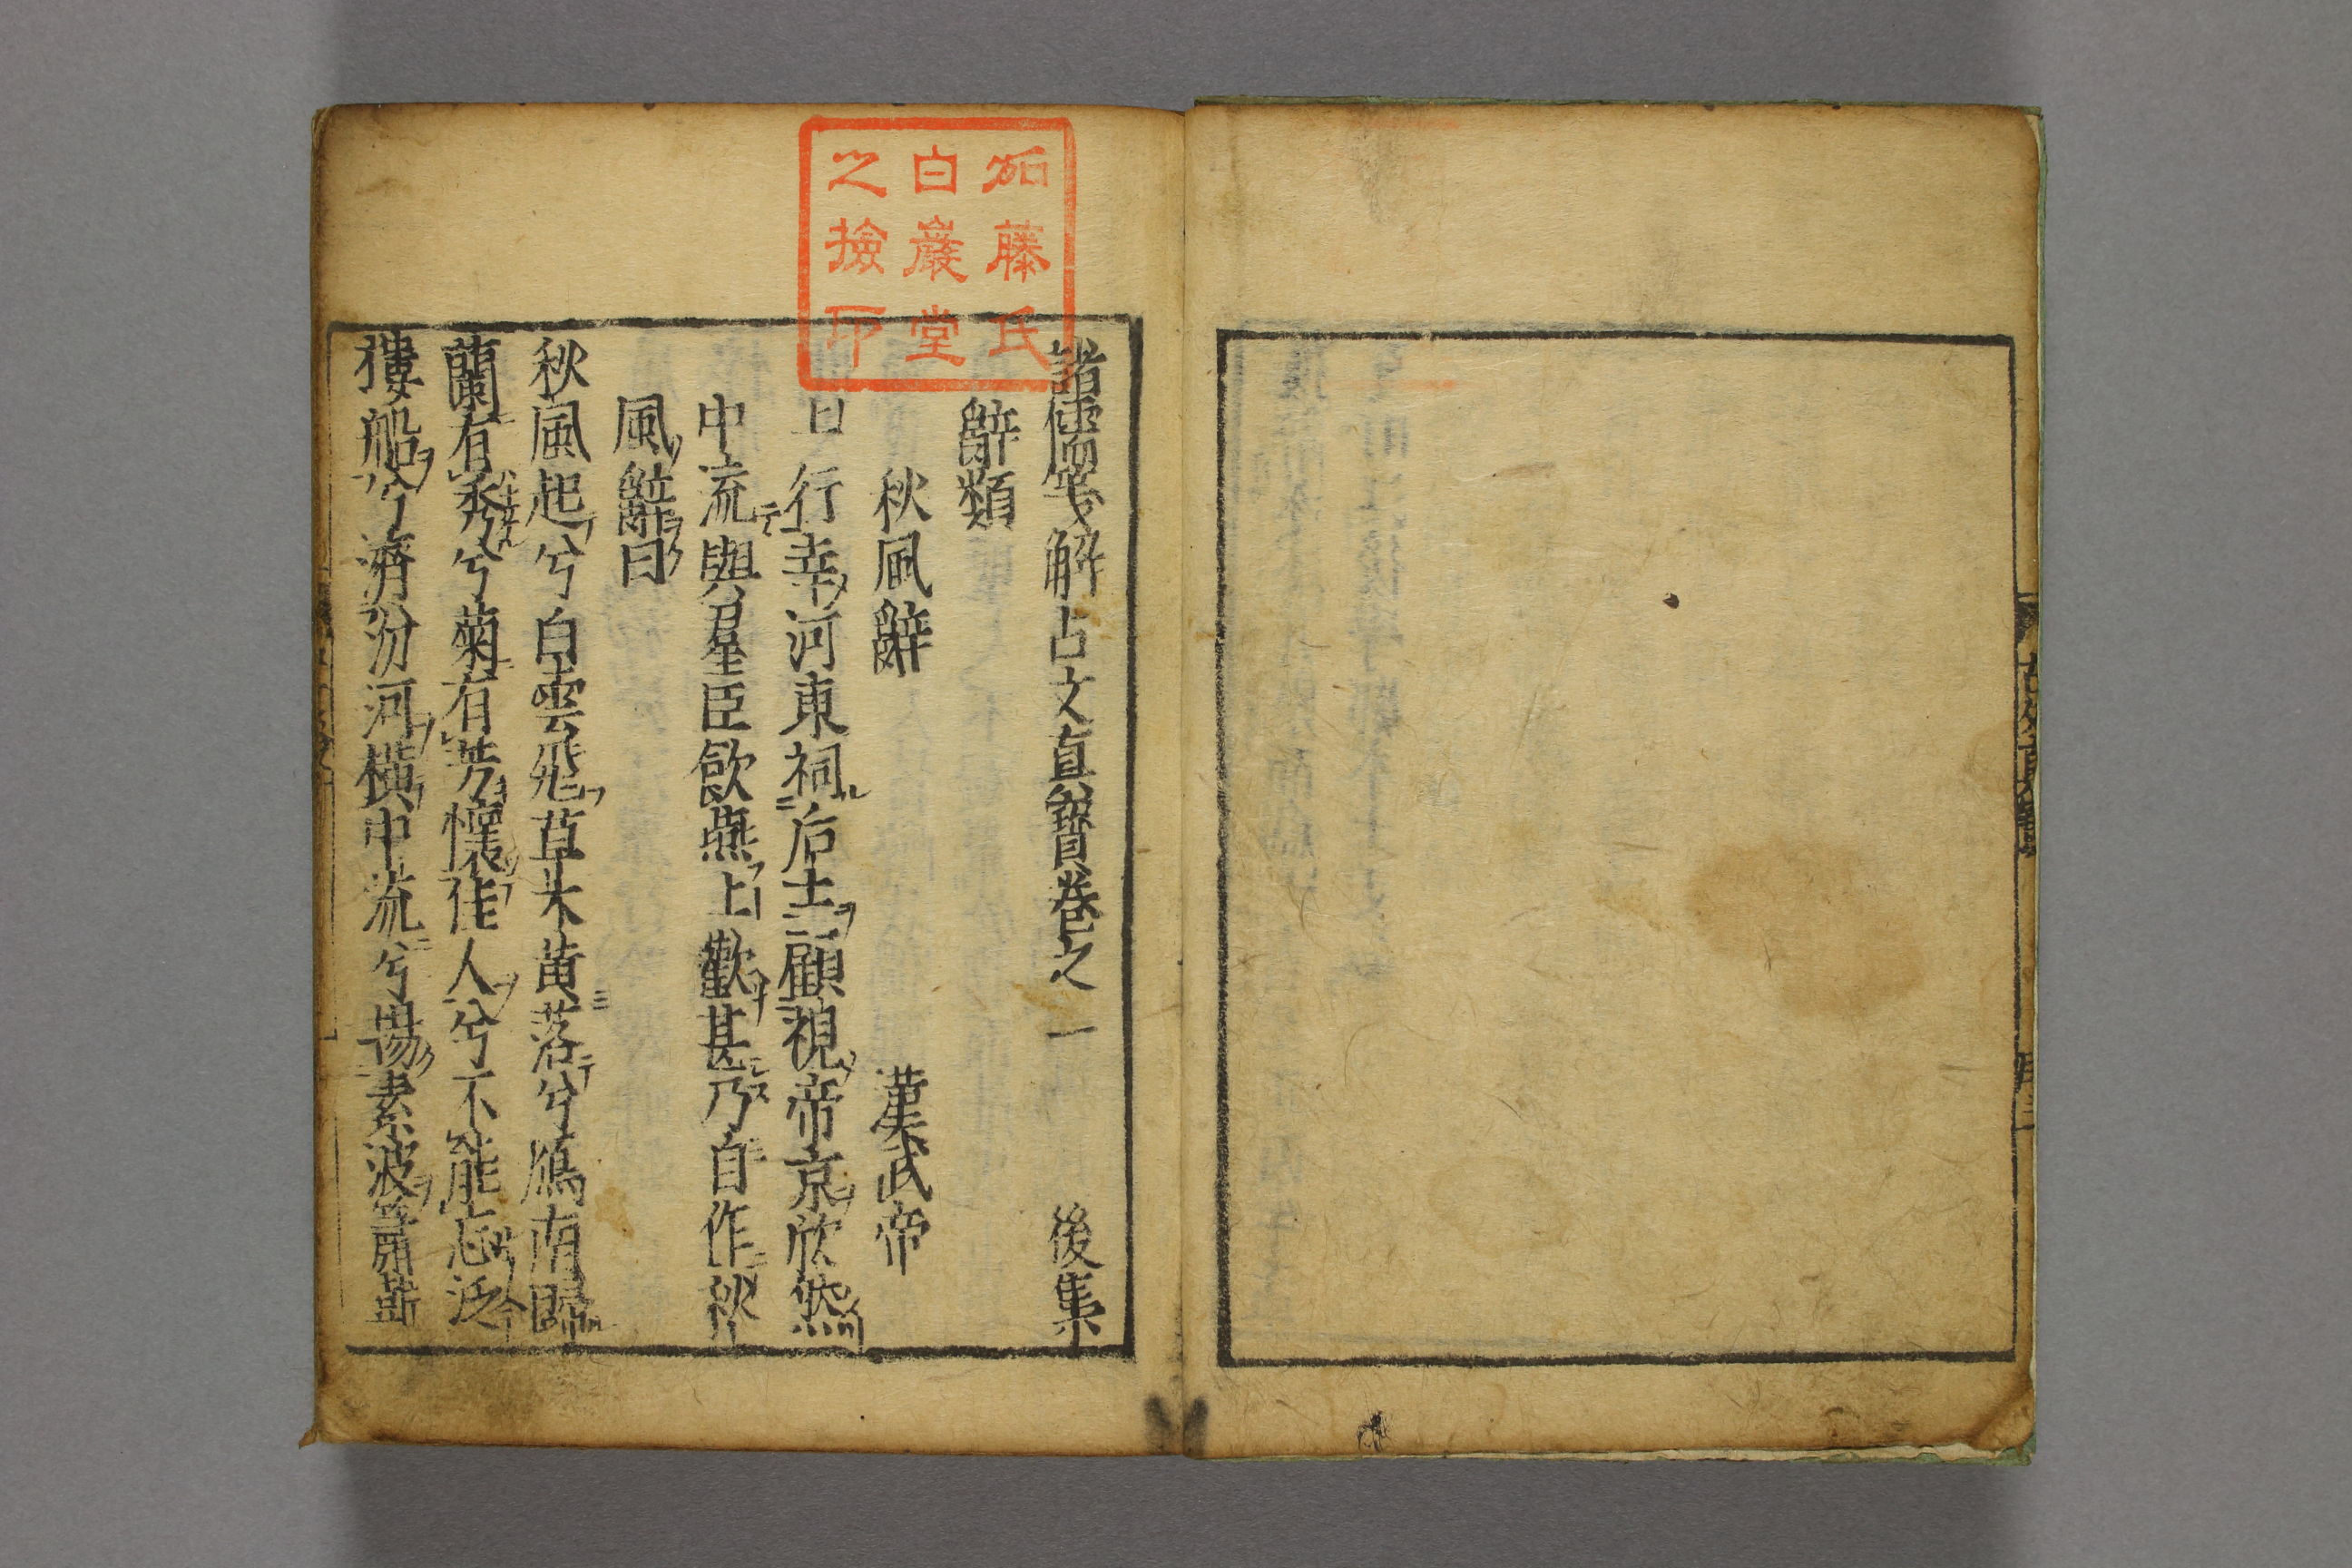 加藤氏
白巖堂
之撿印
諸儒箋解古文真寶卷之一 後集
辭類
秋風辭 漢武帝
上行幸河東祠后土顧視帝京欣然
中流與羣臣飮燕上歡甚乃自作秋
風辭曰
秋風起兮白雲飛草木黃落兮鴈南歸
蘭有秀兮菊有芳懷佳人兮不能忘泛
樓船兮濟汾河橫中流兮揚素波簫鼓